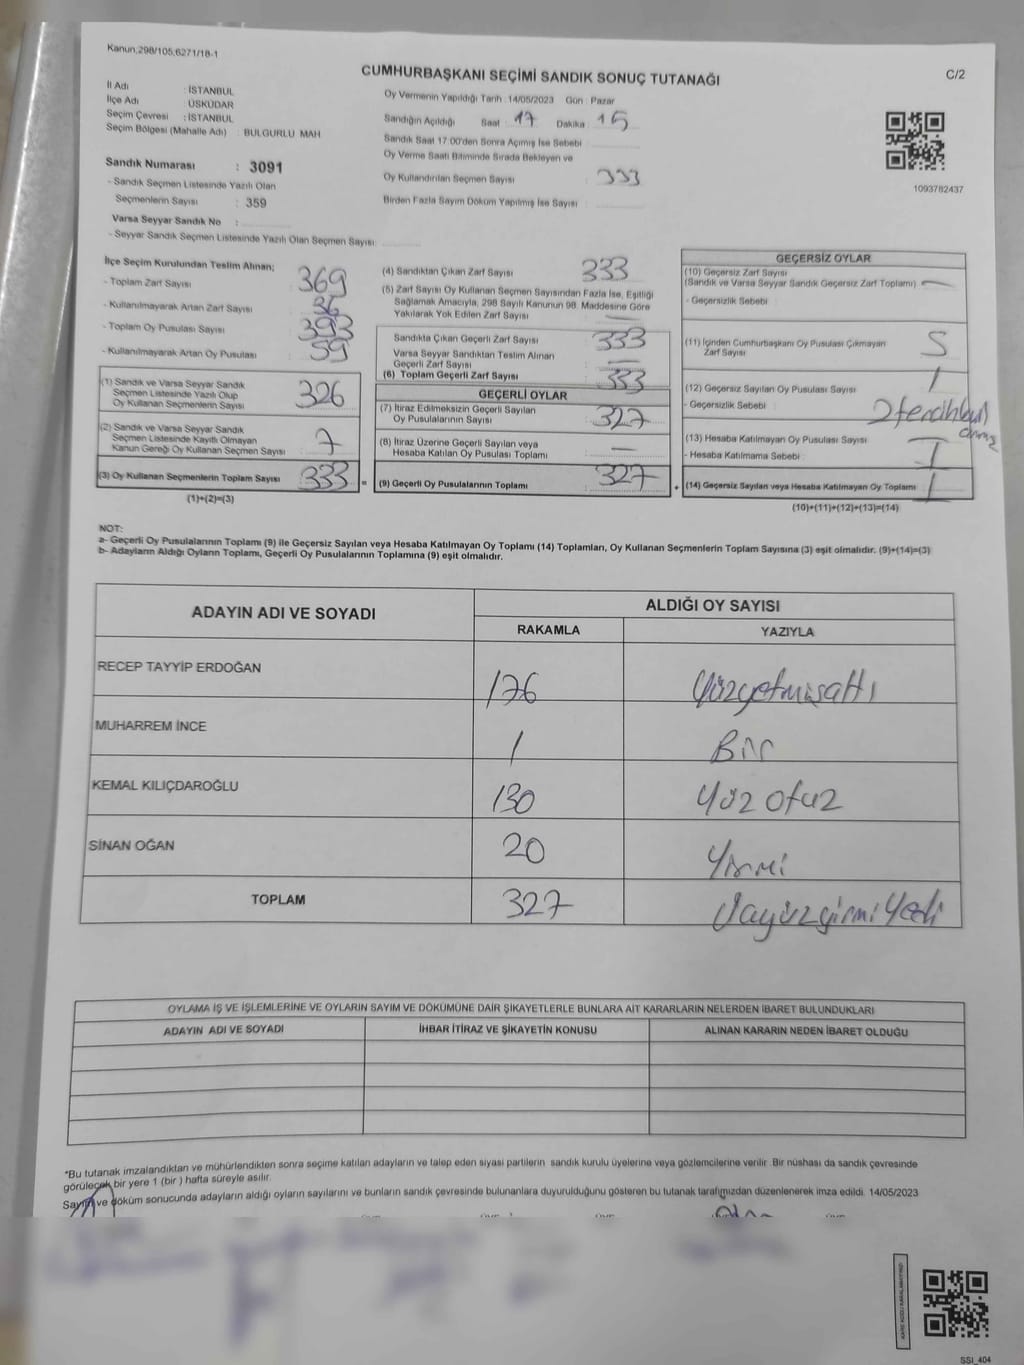 Kanun,298/105,6271/18-1
CUMHURBAŞKANI SEÇİMİ SANDIK SONUÇ TUTANAĞI
C/2
İl Adı : İSTANBUL
İlçe Adı : ÜSKÜDAR
Seçim Çevresi : İSTANBUL
Seçim Bölgesi (Mahalle Adı) : BULGURLU MAH
Sandık Numarası : 3091
- Sandık Seçmen Listesinde Yazılı Olan
Seçmenlerin Sayısı : 359
Varsa Seyyar Sandık No :
- Seyyar Sandık Seçmen Listesinde Yazılı Olan Seçmen Sayısı:
Oy Vermenin Yapıldığı Tarih :14/05/2023 Gün : Pazar
Sandığın Açıldığı Saat : 17 Dakika : 15
Sandık Saat 17:00'den Sonra Açımış İse Sebebi :
Oy Verme Saati Bitiminde Sırada Bekleyen ve
Oy Kullandırılan Seçmen Sayısı : 333
Birden Fazla Sayım Döküm Yapılmış İse Sayısı :
1093782437
İlçe Seçim Kurulundan Teslim Alınan;
- Toplam Zarf Sayısı : 369
- Kullanılmayarak Artan Zarf Sayısı : 36
- Toplam Oy Pusulası Sayısı : 393
- Kullanılmayarak Artan Oy Pusulası : 59
(1) Sandık ve Varsa Seyyar Sandık
Seçmen Listesinde Yazılı Olup
Oy Kullanan Seçmenlerin Sayısı : 326
(2) Sandık ve Varsa Seyyar Sandık
Seçmen Listesinde Kayıtlı Olmayan
Kanun Gereği Oy Kullanan Seçmen Sayısı : 7
(3) Oy Kullanan Seçmenlerin Toplam Sayısı : 333
(1)+(2)=(3)
(4) Sandıktan Çıkan Zarf Sayısı : 333
(5) Zarf Sayısı Oy Kullanan Seçmen Sayısından Fazla İse, Eşitliği
Sağlamak Amacıyla, 298 Sayılı Kanunun 98. Maddesine Göre
Yakılarak Yok Edilen Zarf Sayısı : —
Sandıkta Çıkan Geçerli Zarf Sayısı : 333
Varsa Seyyar Sandıktan Teslim Alınan
Geçerli Zarf Sayısı : —
(6) Toplam Geçerli Zarf Sayısı : 333
GEÇERLİ OYLAR
(7) İtiraz Edilmeksizin Geçerli Sayılan
Oy Pusulalarının Sayısı : 327
(8) İtiraz Üzerine Geçerli Sayılan veya
Hesaba Katılan Oy Pusulası Toplamı : —
= (9) Geçerli Oy Pusulalarının Toplamı : 327
GEÇERSİZ OYLAR
(10) Geçersiz Zarf Sayısı
(Sandık ve Varsa Seyyar Sandık Geçersiz Zarf Toplamı) : —
- Geçersizlik Sebebi :
(11) İçinden Cumhurbaşkanı Oy Pusulası Çıkmayan
Zarf Sayısı : 5
(12) Geçersiz Sayılan Oy Pusulası Sayısı : 1
- Geçersizlik Sebebi :
(13) Hesaba Katılmayan Oy Pusulası Sayısı : —
- Hesaba Katılmama Sebebi :
+ (14) Geçersiz Sayılan veya Hesaba Katılmayan Oy Toplamı :
(10)+(11)+(12)+(13)=(14)
NOT:
a- Geçerli Oy Pusulalarının Toplamı (9) ile Geçersiz Sayılan veya Hesaba Katılmayan Oy Toplamı (14) Toplamları, Oy Kullanan Seçmenlerin Toplam Sayısına (3) eşit olmalıdır. (9)+(14)=(3)
b- Adayların Aldığı Oyların Toplamı, Geçerli Oy Pusulalarının Toplamına (9) eşit olmalıdır.
ADAYIN ADI VE SOYADI
ALDIĞI OY SAYISI
RAKAMLA YAZIYLA
RECEP TAYYİP ERDOĞAN 176 Yüzyetmişaltı
MUHARREM İNCE 1 Bir
KEMAL KILIÇDAROĞLU 130 Yüz otuz
SİNAN OĞAN 20 Yirmi
TOPLAM 327 Üçyüzyirmi Yedi
OYLAMA İŞ VE İŞLEMLERİNE VE OYLARIN SAYIM VE DÖKÜMÜNE DAİR ŞİKAYETLERLE BUNLARA AİT KARARLARIN NELERDEN İBARET BULUNDUKLARI
ADAYIN ADI VE SOYADI İHBAR İTİRAZ VE ŞİKAYETİN KONUSU ALINAN KARARIN NEDEN İBARET OLDUĞU
*Bu tutanak imzalandıktan ve mühürlendikten sonra seçime katılan adayların ve talep eden siyasi partilerin sandık kurulu üyelerine veya gözlemcilerine verilir. Bir nüshası da sandık çevresinde
görülecek bir yere 1 (bir ) hafta süreyle asılır.
Sayım ve döküm sonucunda adayların aldığı oyların sayılarını ve bunların sandık çevresinde bulunanlara duyurulduğunu gösteren bu tutanak tarafımızdan düzenlenerek imza edildi. 14/05/2023
SSI_404